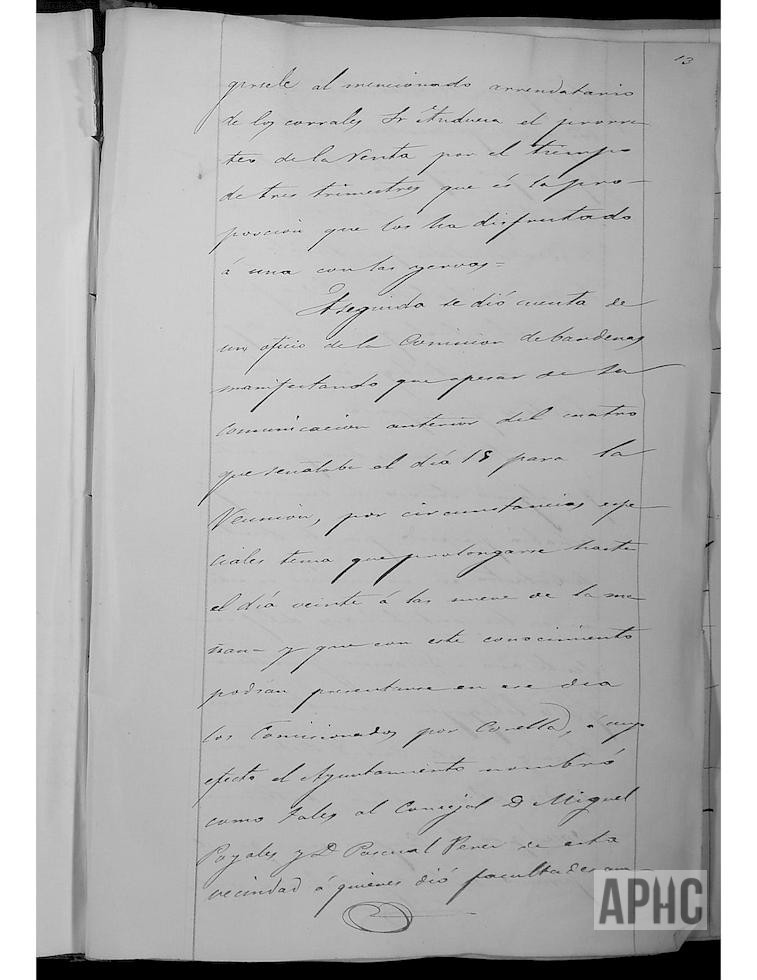 13
girsele al mencionado arrendatario
de los corrales Sr Anduera el prorra-
teo de la Venta por el tiempo
de tres trimestres que és la pro-
porción que los ha disfrutado
á una con las yervas=
Aseguida se dió cuenta de
un oficio de la Comision de bardenas
manifestando que apesar de su
comunicacion anterior del cuatro
que señalaba el día 18 para la
Reunion, por circunstancias espe-
ciales tenia que prolongarse hasta
el día veinte á las nueve de la ma-
ñana y que con este conocimiento
podrian presentarse en ese dia
los Comisionados por Corella, á cuyo
efecto el Ayuntamiento nombró
como tales al Concejal D Miguel
y Dn Pascual de esta
vecindad á quienes dió facultades am-
APHC